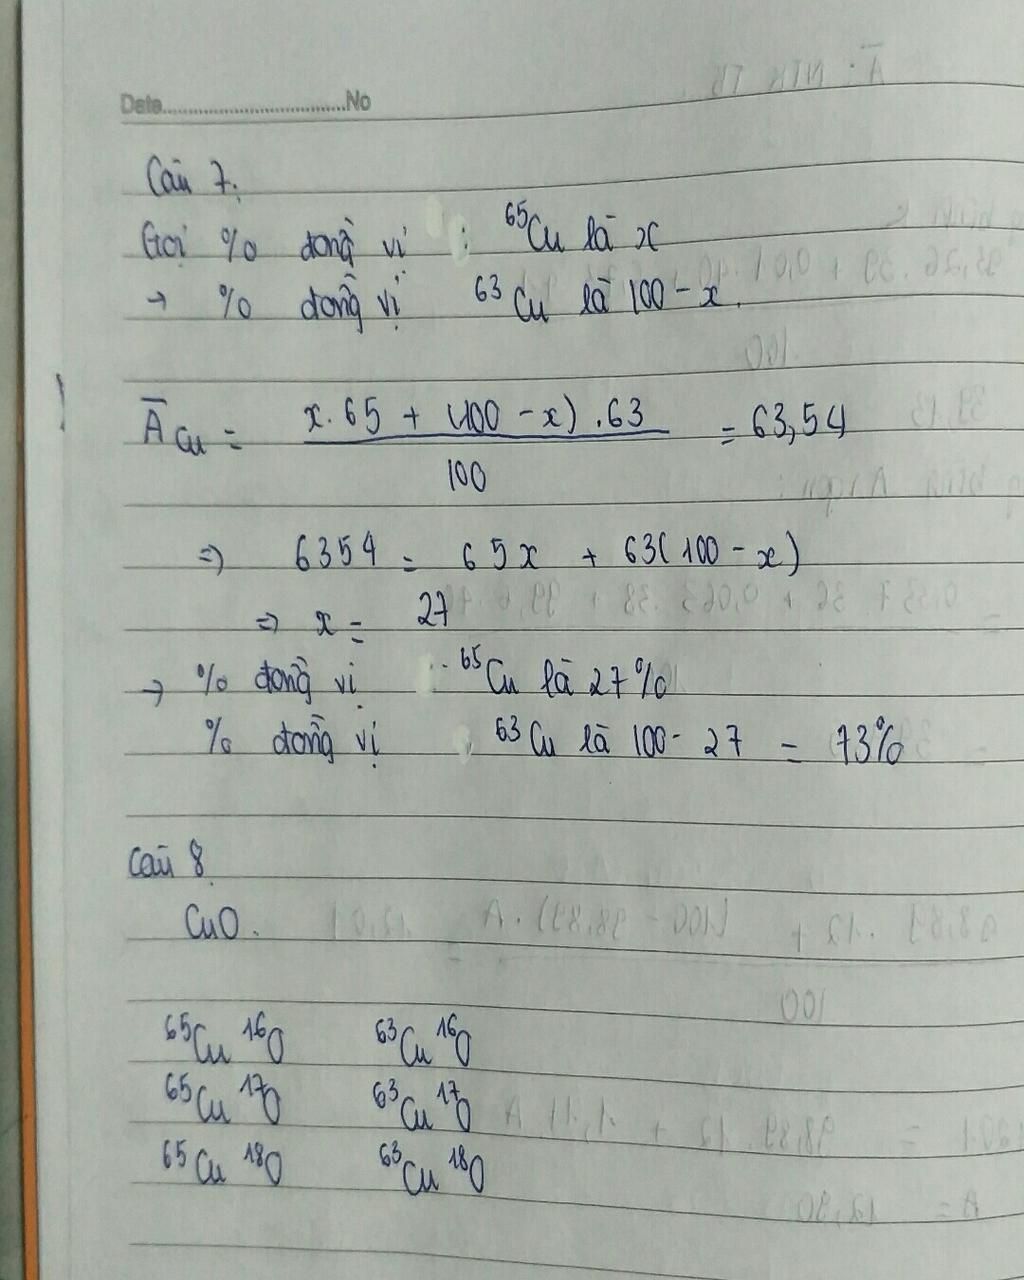 Date..................................No
Câu 7.
Gọi % đồng vị : ⁶⁵Cu là x
→ % đồng vị ⁶³Cu là 100 - x.
A̅ Cu = x.65 + (100 - x).63 / 100 = 63,54
=> 6354 = 65x + 63(100 - x)
=> x = 27
→ % đồng vị ⁶⁵Cu là 27%
% đồng vị ⁶³Cu là 100 - 27 = 73%
Câu 8.
CuO.
⁶⁵Cu ¹⁶O ⁶³Cu ¹⁶O
⁶⁵Cu ¹⁷O ⁶³Cu ¹⁷O
⁶⁵Cu ¹⁸O ⁶³Cu ¹⁸O